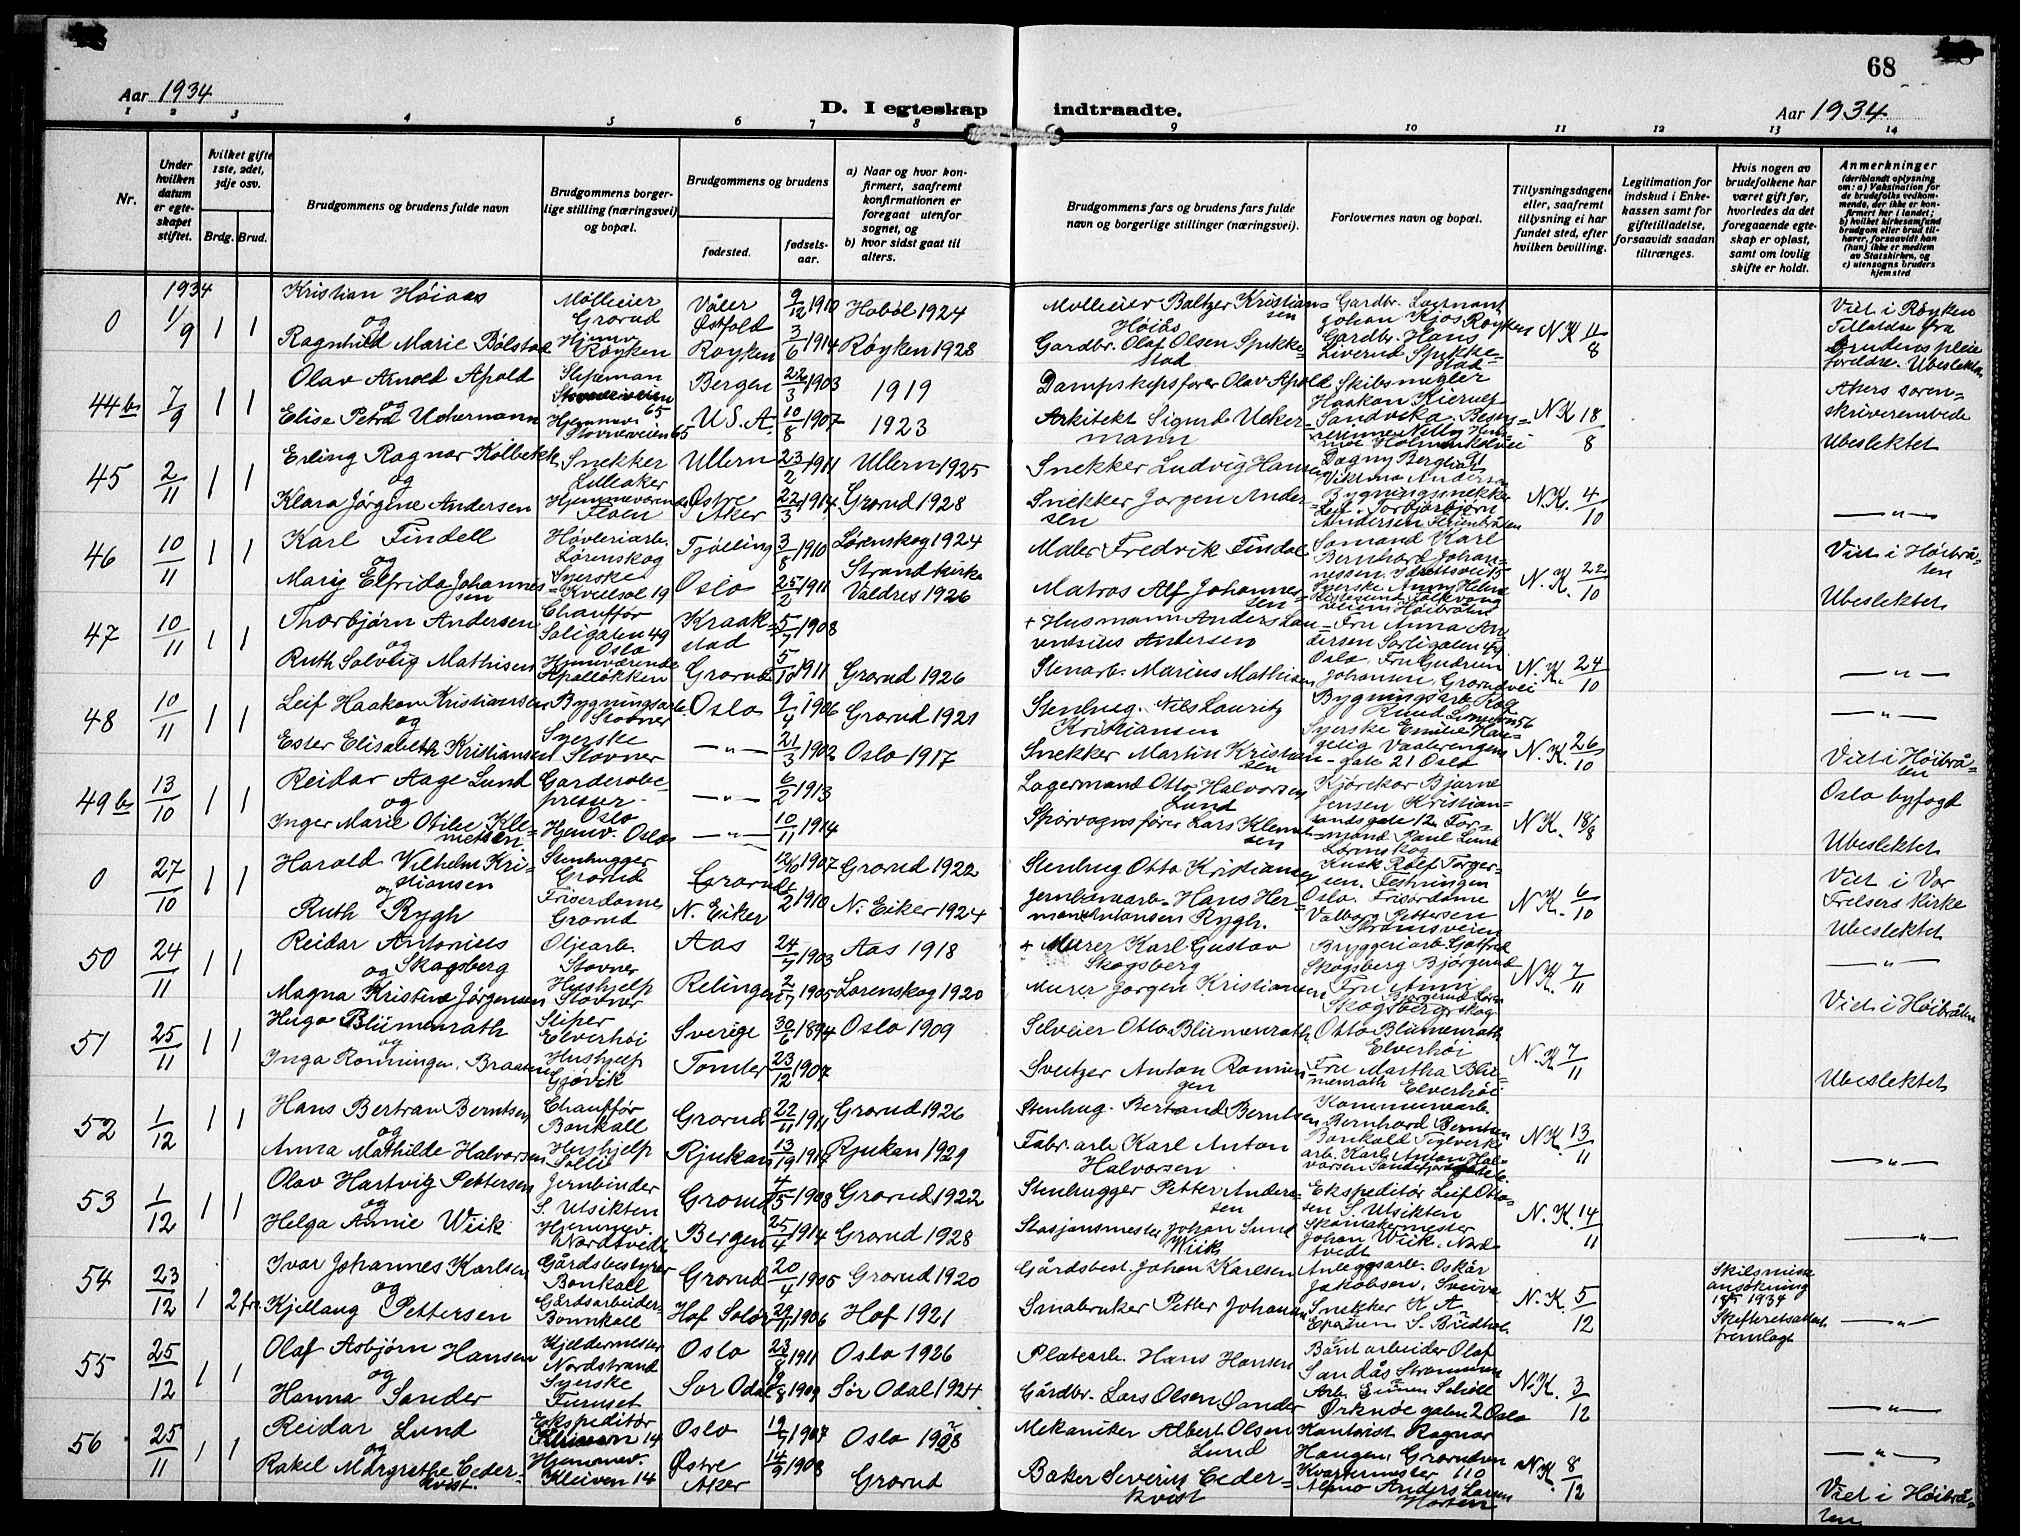 68
Aar 1934
D. I egteskap indtraadte.
Aar 1934
1 2 3 4 5 6 7 8 9 10 11 12 13 14
Nr.
Under hvilken datum er egteskapet stiftet.
hvilket gifte 1ste, 2det, 3dje osv.
Brdg. Brud.
Brudgommens og brudens fulde navn
Brudgommens borgerlige stilling (næringsvei) og bopæl.
Brudgommens og brudens
fødested.
fødselsaar.
a) Naar og hvor konfirmert, saafremt konfirmationen er foregaat utenfor sognet, og
b) hvor sidst gaat til alters.
Brudgommens fars og brudens fars fulde navn og borgerlige stillinger (næringsvei).
Forlovernes navn og bopæl.
Tillysningsdagene eller, saafremt tillysning ei har fundet sted, efter hvilken bevilling.
Legitimation for indskud i Enkekassen samt for giftetilladelse, forsaavidt saadan tiltrænges.
Hvis nogen av brudefolkene har været gift før, hvorledes da det foregaaende egteskap er opløst, samt om lovlig skifte er holdt.
Anmerkninger
(deriblandt oplysning om: a) Vaksination for de brudefolks vedkommende, der ikke er konfirmert her i landet; b) hvilket kirkesamfund brudgom eller brud tilhører, forsaavidt han (hun) ikke er medlem av Statskirken, og c) utensogns bruders hjemsted
1934
0 1/9 1 1 Kristian Høiaas Møllieier Grorud Våler Østfold 9/12 1910 Hobøl 1924 Møllieier Baltzer Kristiansen Høiås Gardbr. Løitnant Johan Kjos Røyken N.K. 11/8 Viet i Røyken
og
Ragnhild Marie Bølstad Hjemv. Røyken Røyken 3/6 1914 Røyken 1928 Gardbr. Olaf Olsen Spikkestad Gardbr. Hans Liverud Spikkestad Tillatelse fra Brudens pleieforeldre. Ubeslektet
44b 7/9 1 1 Olav Arnold Apold Skipsman Stovnerveien 65 Bergen 22/3 1903 1919 Dampskipsfører Olav Apold Skibsmegler Haakon Kierulf Sandvika. N.K. 18/8 Akers sorenskriverembede
og
Elise Petra Uchermann Hjemmev. Stovnerveien 65 U.S.A. 10/8 1907 1923 Arkitekt Sigurd Uckermann Ubeslektet
45 2/11 1 1 Erling Ragnar Kolbekk Snekker Lilleaker Ullern 23/2 1911 Ullern 1925 Snekker Ludvig Hansen Dagny Bergliot Viktoria Andersen N.K. 4/10
og
Klara Jørgine Andersen Hjemmeværende Østre Aker 22/3 1914 Grorud 1928 Snekker Jørgen Andersen Bygningssnekker Torbjørn Andersen — „ —
46 10/11 1 1 Karl Findell Høvleriarb. Lørenskog Tjølling 3/8 1910 Lørenskog 1924 Maler Fredrik Findell Sømand Karl Bernhard Johannessen. N.K. 22/10 Viet i Høibråten
og
Marie Elfrida Johannessen Syerske Oslo 25/2 1911 Strandkirke Valdres 1926 Matros Alf Johannessen Syerske Høibråten Ubeslektet
47 10/11 1 1 Thorbjørn Andersen Chauffør Sarligaten 49 Oslo Kraakstad 5/7 1908 + Husmann Anders Laurentsius Andersen Fru Anna Andersen Sarligaten 49 Oslo. N.K. 24/10
og
Ruth Solveig Mathisen Hjemværende Apalløkken Grorud 5/10 1911 Grorud 1926 Stenarb. Marius Mathisen Fru Gudrun Johansen, Grorudvei — „ —
48 10/11 1 1 Leif Haakon Kristiansen Bygningsarb. Stovner Oslo 9/4 1906 Grorud 1921 Stenhug. Nils Lauritz Kristiansen Bygningsarb. N.K. 26/10 — „ —
og
Ester Elisabeth Kristiansen Syerske Stovner — „ — 21/3 1902 Oslo 1917 Snekker Martin Kristiansen Syerske Emilie Vaalerengens gate 21 Oslo Viet i Høibråten
49b 13/10 1 1 Reidar Aage Lund Garderobepresser Oslo — „ — 6/2 1913 Lagermand Otto Halvorsen Lund Kjørekar Bjarne Jensen Kristiansandsgate 12. N.K. 18/8 Oslo byfogd
og
Inger Marie Otilie Klemetsen Hjemv. Oslo — „ — 10/11 1914 Sporvognsfører Lars Klemetsen Formand Paul Lund Lørenskog Ubeslektet
0 27/10 1 1 Harald Vilhelm Kristiansen Stenhugger Grorud Grorud 12/10 1907 Grorud 1922 Stenhug Otto Kristiansen Kusk Rolf Torgersen. Festningen Oslo. N.K. 6/10 Viet i Vor Frelsers kirke
og
Ruth Rygh Friserdame Grorud N. Eiker 2/2 1910 N. Eiker 1924 Jernbanearb. Hans Herman Antonsen Rygh. Friserdame Valborg Pettersen Strømsveien Ubeslektet
50 24/11 1 1 Reidar Antonius Skogsberg Oljearb. Stovner Aas 24/7 1903 Aas 1918 + Murer Karl Gustav Skogsberg Bryggeriarb. Gotfred Skogsberg Bjørgerud N.K. 7/11 — „ —
og
Magna Kristine Jørgensen Hushjelp Stovner Relingen 2/7 1905 Lørenskog 1920 Murer Jørgen Kristiansen Fru Anna Skogsberg Viet i Høibråten
51 25/11 1 1 Hugo Blümenrath Sliper Elverhøi Sverige 30/6 1894 Oslo 1909 Selveier Otto Blümenrath Otto Blümenrath Elverhøi N.K. 7/11
og
Inga Rønningen, Braaten Hushjelp Gjøvik Tomter 23/12 1907 Sveitzer Anton Rønningen Fru Martha Blümenrath Elverhøi Ubeslektet
52 1/12 1 1 Hans Bertran Berntsen Chauffør Bonkall Grorud 22/11 1911 Grorud 1926 Stenhug. Bertrand Berntsen Kommunearb. Bernhard Berntsen Bonkald N.K. 13/11
og
Anna Mathilde Halvorsen Hushjelp Sollie Rjukan 13/19 1914 Rjukan 1929 Fabr. arb. Karl Anton Halvorsen Teglverksarb. Karl Anton Halvorsen — „ —
53 1/12 1 1 Olav Hartvig Pettersen Jernbinder S. Utsikten Grorud 4/5 1908 Grorud 1922 Stenhugger Petter Andersen Ekspeditør Leif Ottosen S. Utsikten N.K. 14/11
og
Helga Annie Wiik Hjemmev. Nordtvedt Bergen 25/4 1914 Grorud 1928 Stasjonsmester Johan Sund Wiik Skomakermester Johan Wiik. Nordtvedt — „ —
54 23/12 1 2 fr. Ivar Johannes Karlsen Gårdsbestyrer Bonkall Grorud 20/4 1905 Grorud 1920 Gårdsbest. Johan Karlsen Anleggsarb. Oskar Jakobsen, N.K. 5/12 Skilsmisse ansøkning 1934 Skifteretsattest fremlagt
og
Kjellaug Pettersen Gårdsarbeider Bonnkall Hof Solør 29/11 1906 Hof 1921 Småbruker Petter Johansen Snekker K. A. — „ —
55 25/12 1 1 Olaf Asbjørn Hansen Kjeldermester Nordstrand Oslo 23/8 1911 Oslo 1926 Platearb. Hans Hansen Olaf Sandås Strømmen N.K. 3/12
og
Hanna Sander Syerske Furuset Sør Odal 19/8 1909 Sør Odal 1924 Gårdbr. Lars Olsen Sander Arb. Einar Ørknøe gaten 2 Oslo — „ —
56 25/11 1 1 Reidar Lund Ekspeditør Kleiven 14 Oslo 19/7 1907 Oslo 1922 Mekaniker Albert Olsen Lund Kontorist Ragnar Haugen, Grorudvn 110 N.K. 8/12 — „ —
og
Rakel Margrethe Cederkvist. Hjemmev. Kleiven 14 Østre Aker 14/9 1908 Grorud Baker Severin Cederkvist Kvartermester Anders Larsen Horten Viet i Høibråten